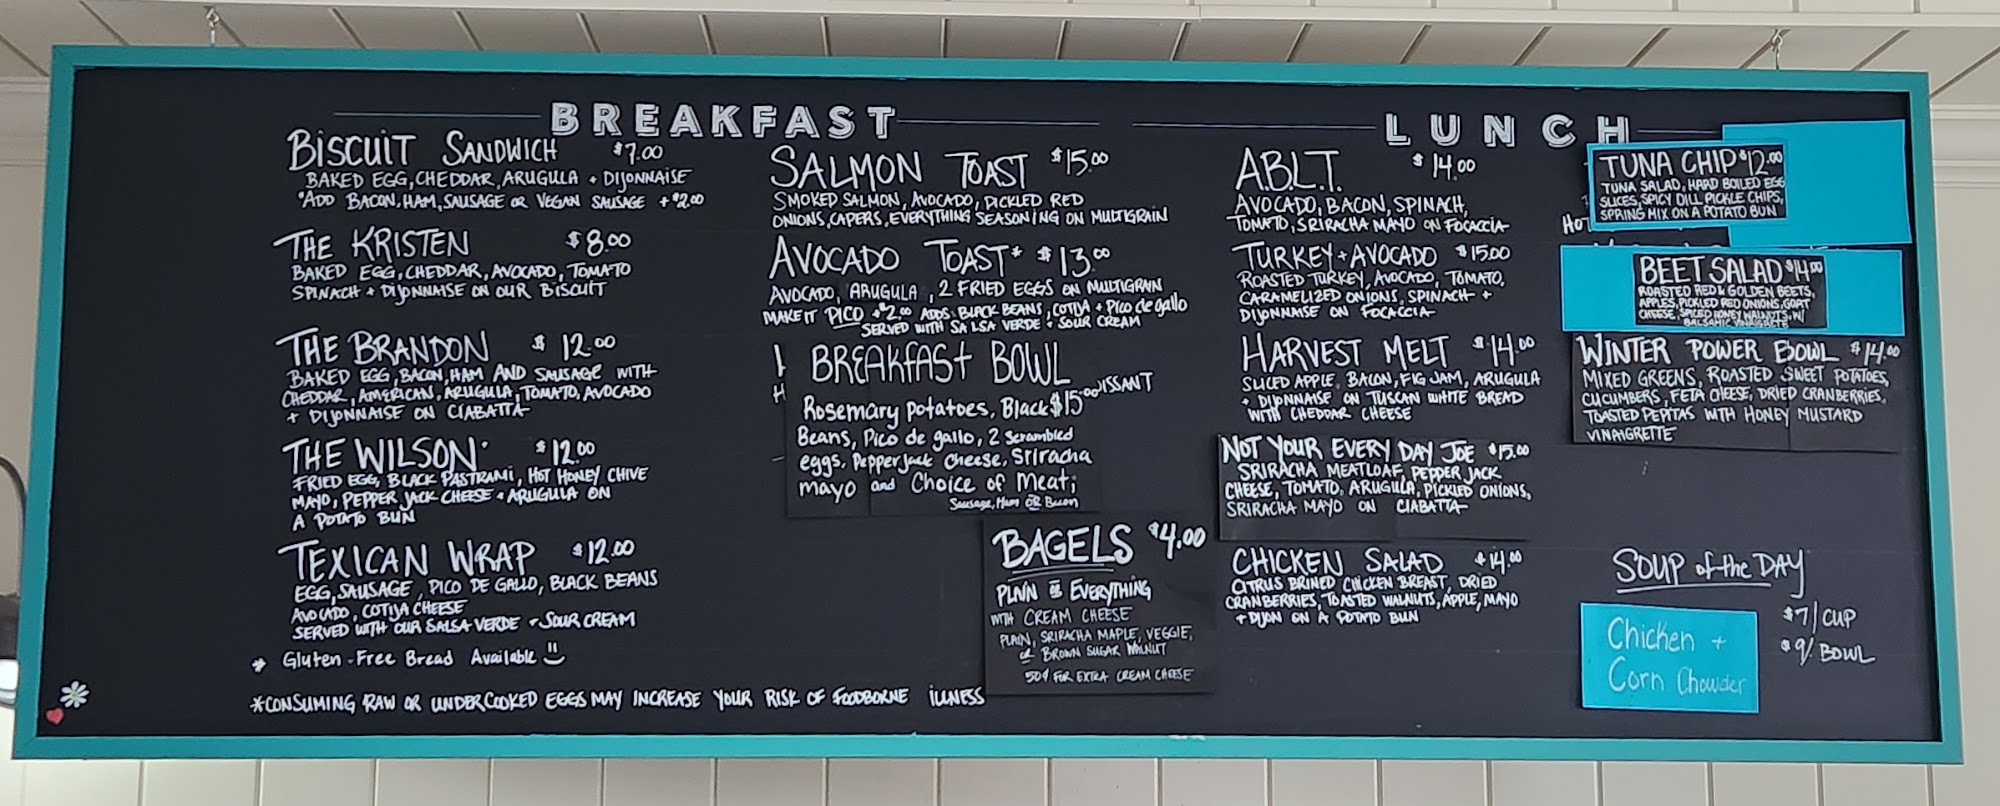 BREAKFAST
BISCUIT SANDWICH $7.00
BAKED EGG, CHEDDAR, ARUGULA + DIJONNAISE
*ADD BACON, HAM, SAUSAGE OR VEGAN SAUSAGE +$2.00
THE KRISTEN $8.00
BAKED EGG, CHEDDAR, AVOCADO, TOMATO
SPINACH + DIJONNAISE ON OUR BISCUIT
THE BRANDON $12.00
BAKED EGG, BACON, HAM AND SAUSAGE WITH
CHEDDAR, AMERICAN, ARUGULA, TOMATO, AVOCADO
+ DIJONNAISE ON CIABATTA
THE WILSON* $12.00
FRIED EGG, BLACK PASTRAMI, HOT HONEY CHIVE
MAYO, PEPPER JACK CHEESE + ARUGULA ON
A POTATO BUN
TEXICAN WRAP $12.00
EGG, SAUSAGE, PICO DE GALLO, BLACK BEANS
AVOCADO, COTIJA CHEESE
SERVED WITH OUR SALSA VERDE + SOUR CREAM
* Gluten-Free Bread Available
*CONSUMING RAW OR UNDERCOOKED EGGS MAY INCREASE YOUR RISK OF FOODBORNE ILLNESS
SALMON TOAST $15.00
SMOKED SALMON, AVOCADO, PICKLED RED
ONIONS, CAPERS, EVERYTHING SEASONING ON MULTIGRAIN
AVOCADO TOAST* $13.00
AVOCADO, ARUGULA, 2 FRIED EGGS ON MULTIGRAIN
MAKE IT PICO +$2.00 ADDS BLACK BEANS, COTIJA + Pico de gallo
SERVED WITH SALSA VERDE + SOUR CREAM
BREAKFAST BOWL
Rosemary potatoes, Black $15.00
Beans, Pico de gallo, 2 Scrambled
eggs, Pepperjack Cheese, Sriracha
mayo and Choice of Meat;
Sausage, Ham OR Bacon
BAGELS $4.00
PLAIN OR EVERYTHING
WITH CREAM CHEESE
PLAIN, SRIRACHA MAPLE, VEGGIE,
OR BROWN SUGAR WALNUT
50¢ FOR EXTRA CREAM CHEESE
LUNCH
A.B.L.T. $14.00
AVOCADO, BACON, SPINACH,
TOMATO, SRIRACHA MAYO ON FOCACCIA
TURKEY + AVOCADO $15.00
ROASTED TURKEY, AVOCADO, TOMATO,
CARAMELIZED ONIONS, SPINACH +
DIJONNAISE ON FOCACCIA
HARVEST MELT $14.00
SLICED APPLE, BACON, FIG JAM, ARUGULA
+ DIJONNAISE ON TUSCAN WHITE BREAD
WITH CHEDDAR CHEESE
NOT YOUR EVERY DAY JOE $15.00
SRIRACHA MEATLOAF, PEPPER JACK
CHEESE, TOMATO, ARUGULA, PICKLED ONIONS,
SRIRACHA MAYO ON CIABATTA
CHICKEN SALAD $14.00
CITRUS BRINED CHICKEN BREAST, DRIED
CRANBERRIES, TOASTED WALNUTS, APPLE, MAYO
+ DIJON ON A POTATO BUN
TUNA CHIP $12.00
TUNA SALAD, HARD BOILED EGG
SLICES, SPICY DILL PICKLE CHIPS,
SPRING MIX ON A POTATO BUN
BEET SALAD $14.00
ROASTED RED & GOLDEN BEETS,
APPLES, PICKLED RED ONIONS, GOAT
CHEESE, SPICED HONEY WALNUTS, W/
BALSAMIC VINAIGRETTE
WINTER POWER BOWL $14.00
MIXED GREENS, ROASTED SWEET POTATOES,
CUCUMBERS, FETA CHEESE, DRIED CRANBERRIES,
TOASTED PEPITAS WITH HONEY MUSTARD
VINAIGRETTE
SOUP of the DAY
Chicken +
Corn Chowder
$7/CUP
$9/BOWL